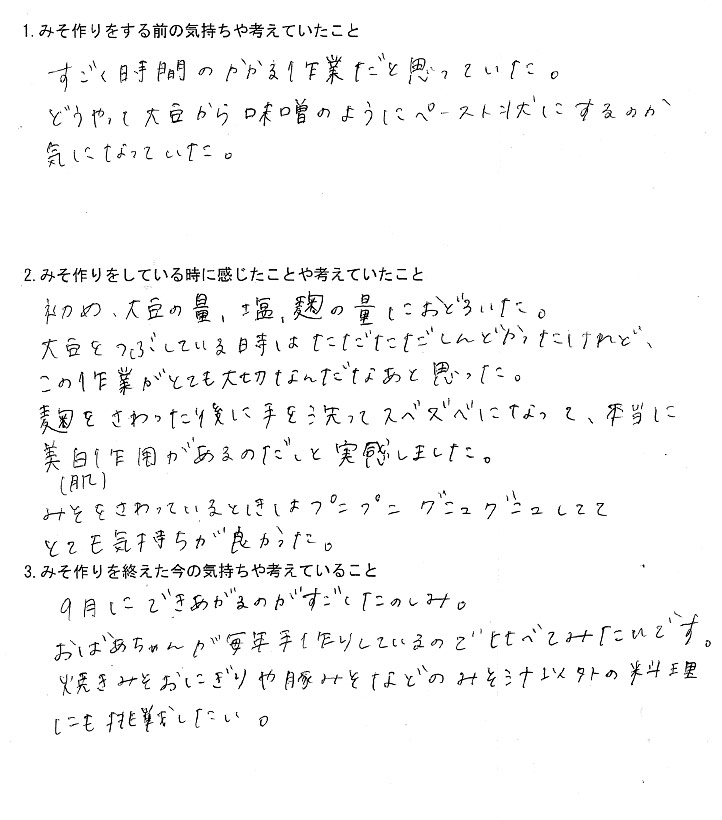 1.みそ作りをする前の気持ちや考えていたこと
すごく時間のかかる作業だと思っていた。
どうやって大豆から味噌のようにペースト状にするのか
気になっていた。
2.みそ作りをしている時に感じたことや考えていたこと
初め、大豆の量、塩、麹の量におどろいた。
大豆をつぶしている時はただただしんどかったけれど、
この作業がとても大切なんだなあと思った。
麹をさわったり後に手を洗ってスベスベになって、本当に
美白作用があるのだと実感しました。
(肌)
みそをさわっているときはプニプニグニュグニュしてて
とても気持ちが良かった。
3.みそ作りを終えた今の気持ちや考えていること
9月にできあがるのがすごくたのしみ。
おばあちゃんが毎年手作りしているので比べてみたいです。
焼きみそおにぎりや豚みそなどのみそ汁以外の料理
にも挑戦したい。